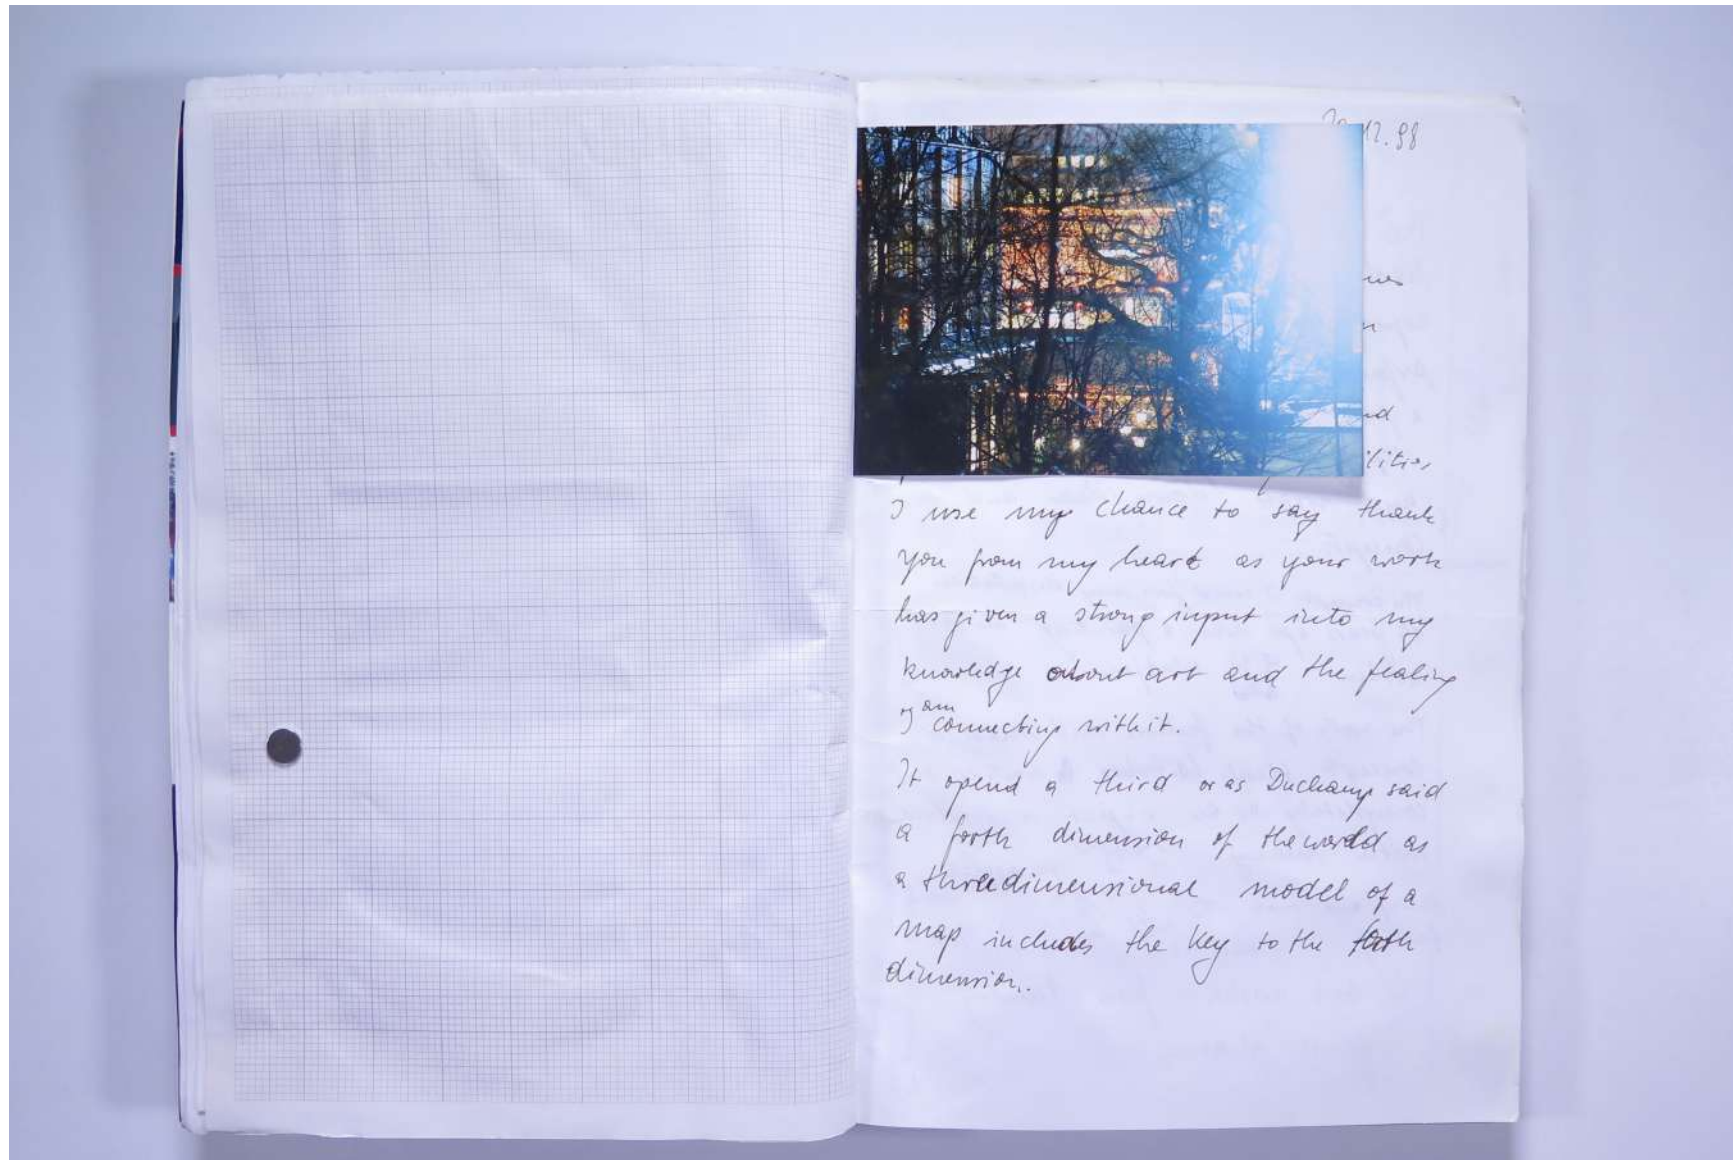 12.98
ies
nd
I use my chance to say thank
you from my heart as your work
has given a strong input into my
knowledge about art and the fealing
I am connecting with it.
It opend a third or as Duchamp said
a forth dimension of the world as
a threedimensional model of a
map includes the key to the forth
dimension.